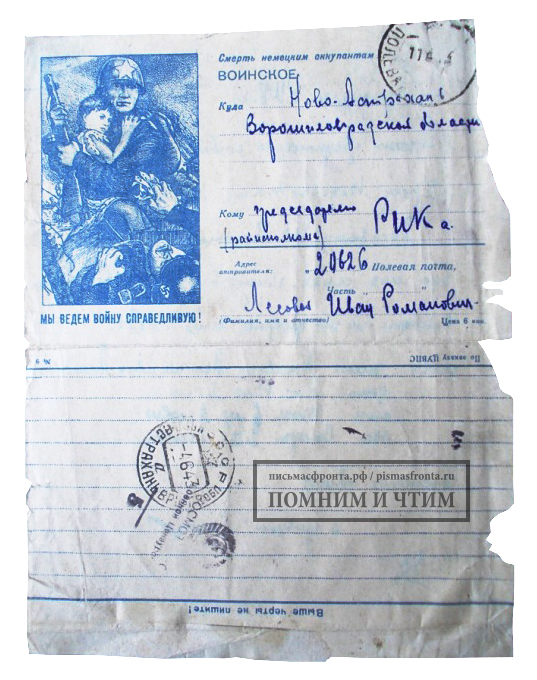 Смерть немецким оккупантам
ВОИНСКОЕ
Куда Ново-Астрахань
Ворошиловградская области
Кому председателю
(райисполкома) РИКа.
Адрес отправителя: 20626 Полевая почта,
Часть
Лесовой Иван Романович
(Фамилия, имя и отчество) Цена 5 коп.
МЫ ВЕДЕМ ВОЙНУ СПРАВЕДЛИВУЮ!
По заказу ЦУВПС
№ 9
письмасфронта.рф / pismasfronta.ru
ПОМНИМ И ЧТИМ
Выше черты не пишите!